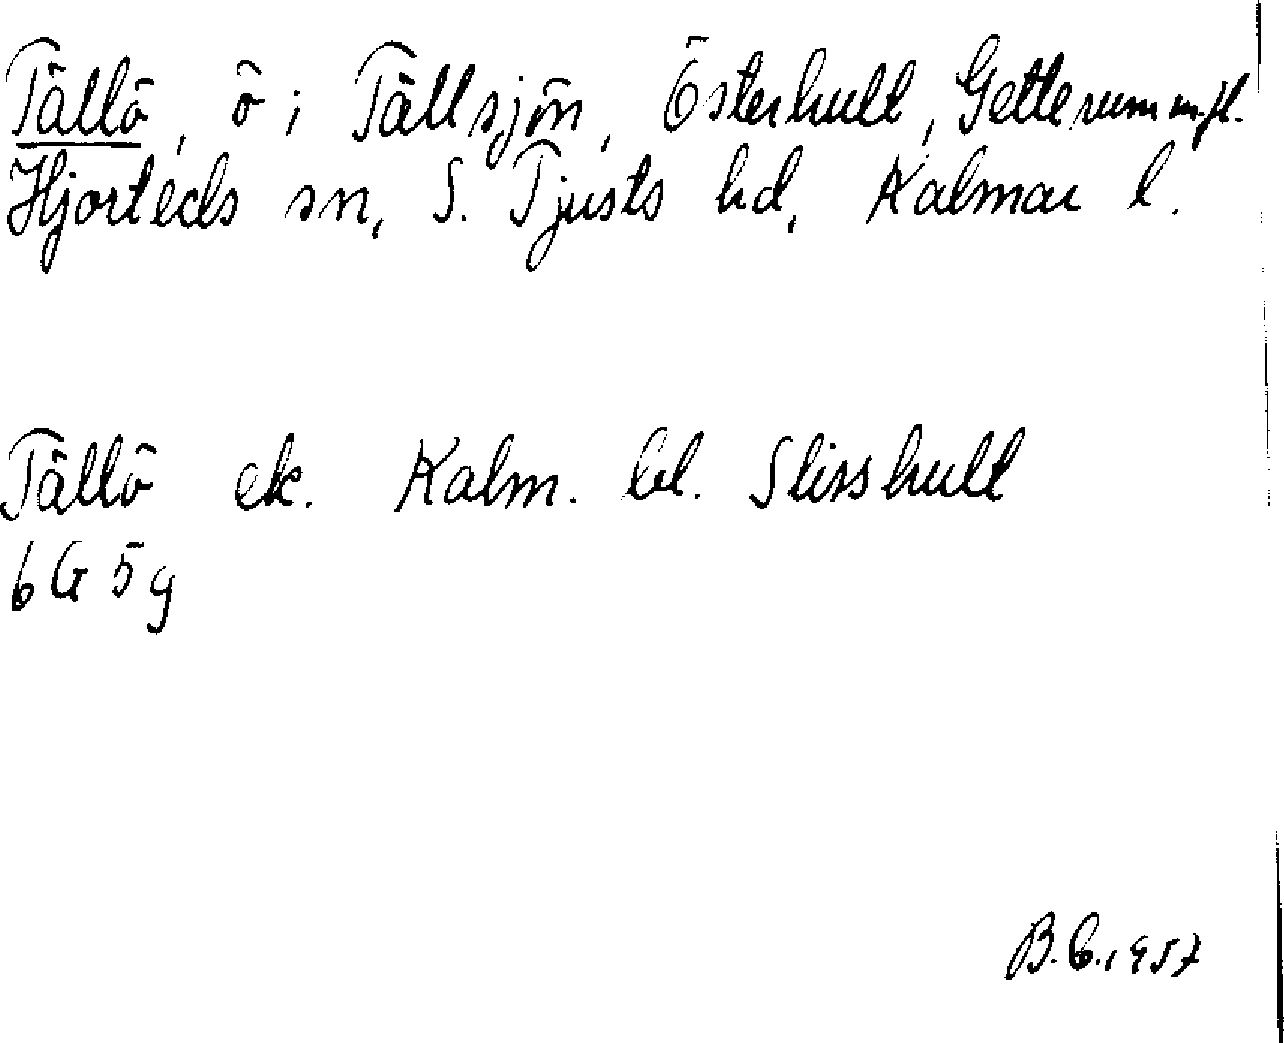 Tällö, ö i Tällsjön, Österhult, Getterum m.fl.
Hjorteds sn, S. Tjusts hd, Kalmar l.
Tällö ek. Kalm. bl. Slisshult
6G 5g
B.E. 1957